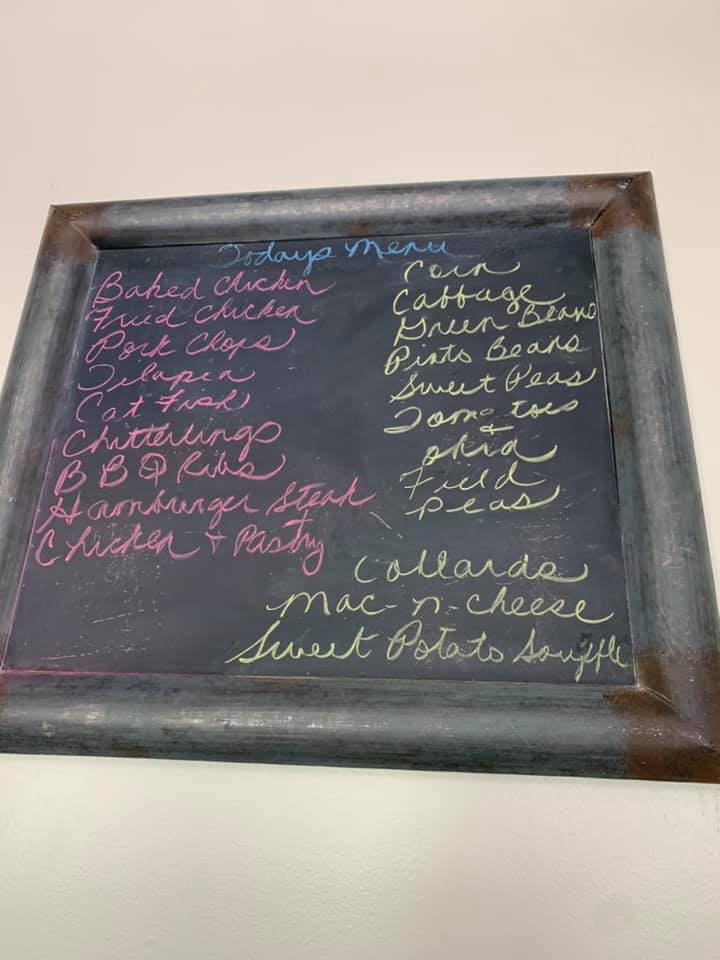 Todays Menu
Baked Chicken
Fried Chicken
Pork Chops
Tilapia
Cat Fish
Chitterlings
BBQ Ribs
Hamburger Steak
Chicken + Pastry
Corn
Cabbage
Green Beans
Pinto Beans
Sweet Peas
Tomatoes
+
okra
Field
Peas
Collards
Mac-n-cheese
Sweet Potato Souffle